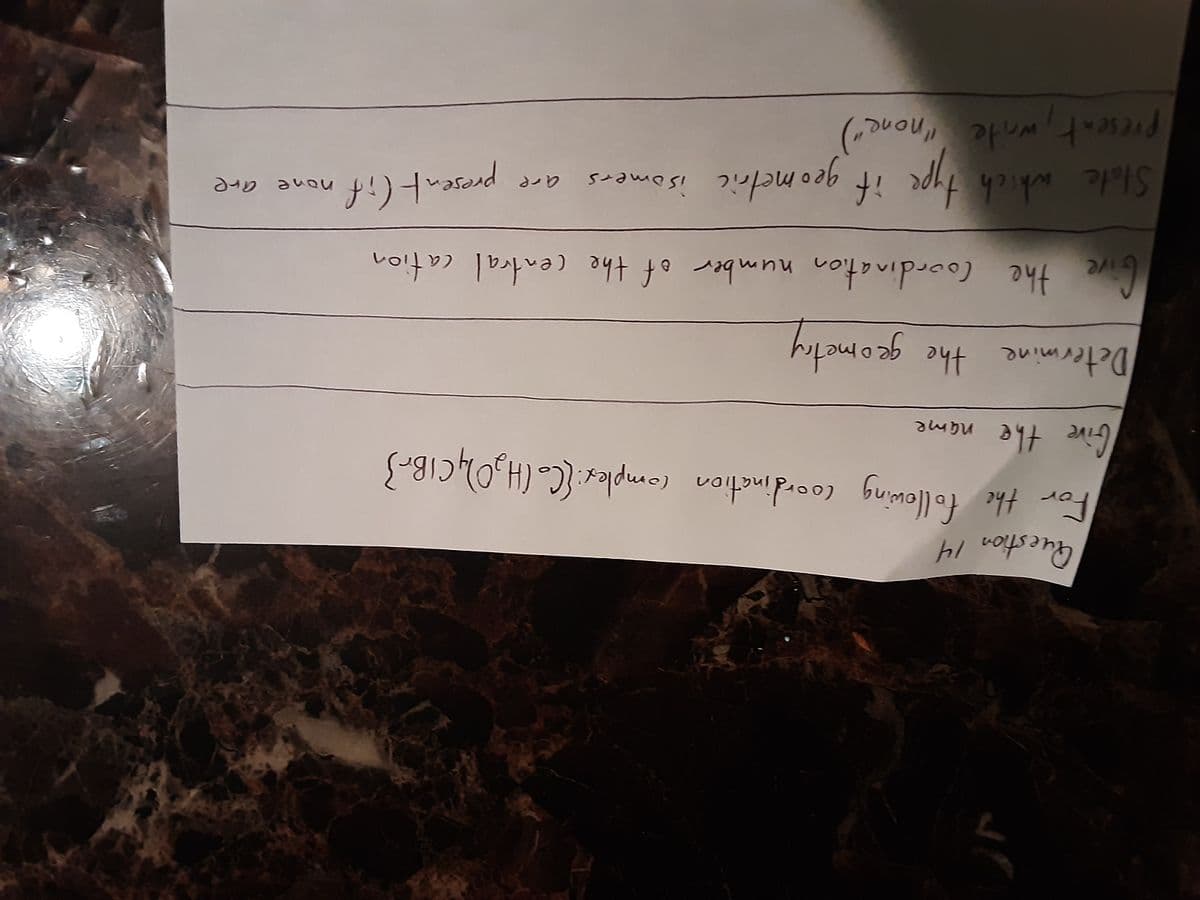 Question 14
For the following coordination complex: {Co(H₂O)₄ClBr}
Give the name
Determine the geometry
Give the coordination number of the central cation
State which type if geometric isomers are present (if none are
present, write "none")